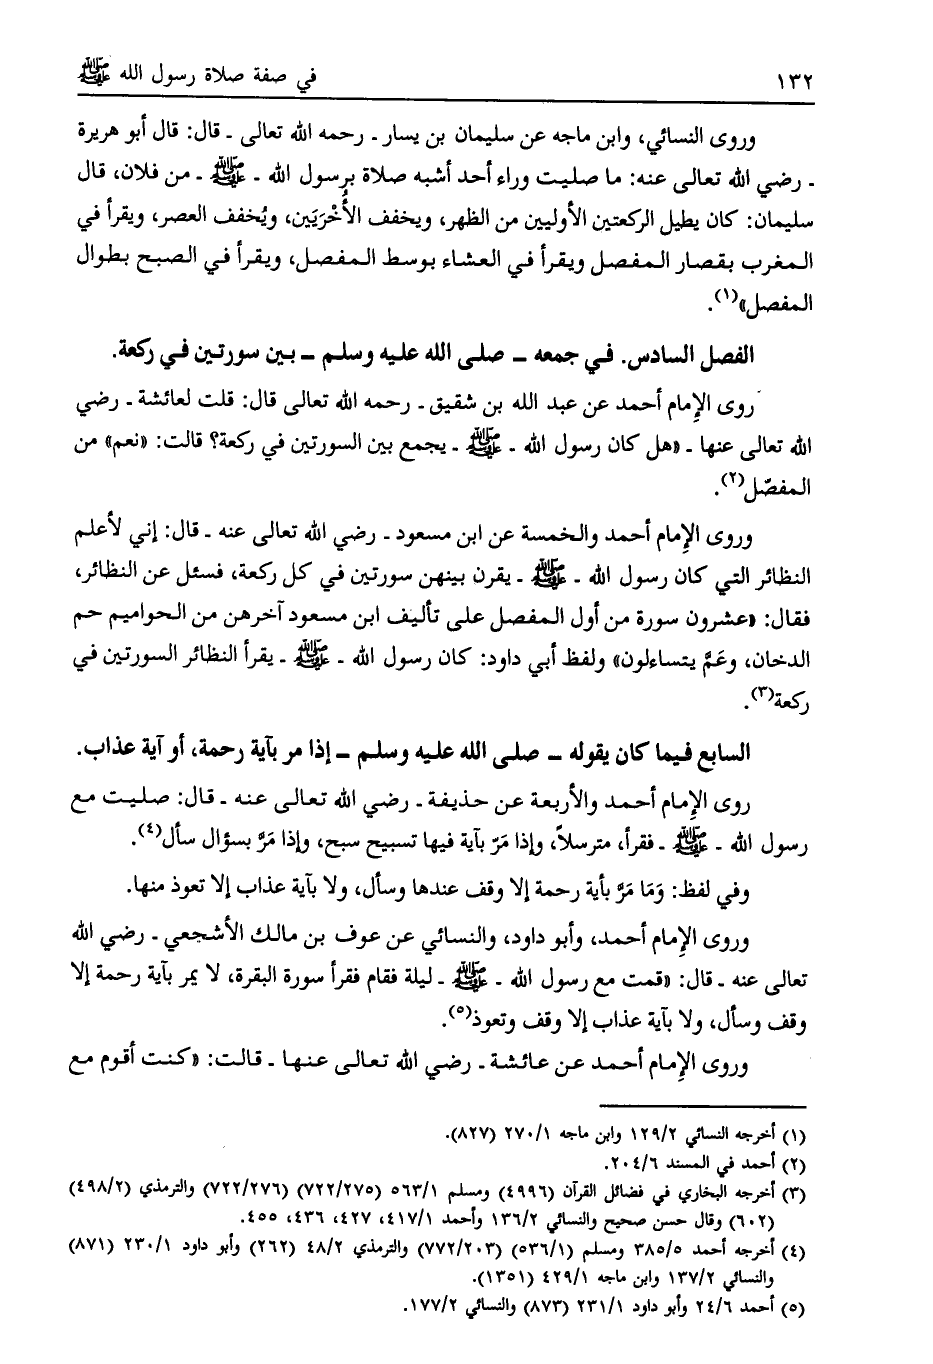 ١٣٢ في صفة صلاة رسول الله ﷺ
وروى النسائي، وابن ماجه عن سليمان بن يسار ـ رحمه الله تعالى ـ قال: قال أبو هريرة
ـ رضي الله تعالى عنه: ما صليت وراء أحد أشبه صلاة برسول الله ـ ﷺ ـ من فلان، قال
سليمان: كان يطيل الركعتين الأوليين من الظهر، ويخفف الأُخْرَيَين، ويُخفف العصر، ويقرأ في
المغرب بقصار المفصل ويقرأ في العشاء بوسط المفصل، ويقرأ في الصبح بطوال
المفصل»(١).
الفصل السادس. في جمعه ـ صلى الله عليه وسلم ـ بين سورتين في ركعة.
روى الإمام أحمد عن عبد الله بن شقيق ـ رحمه الله تعالى قال: قلت لعائشة ـ رضي
الله تعالى عنها ـ «هل كان رسول الله ـ ﷺ ـ يجمع بين السورتين في ركعة؟ قالت: «نعم» من
المفصّل(٢).
وروى الإمام أحمد والخمسة عن ابن مسعود ـ رضي الله تعالى عنه ـ قال: إني لأعلم
النظائر التي كان رسول الله ـ ﷺ ـ يقرن بينهن سورتين في كل ركعة، فسئل عن النظائر،
فقال: «عشرون سورة من أول المفصل على تأليف ابن مسعود آخرهن من الحواميم حم
الدخان، وعَمَّ يتساءلون» ولفظ أبي داود: كان رسول الله ـ ﷺ ـ يقرأ النظائر السورتين في
ركعة(٣).
السابع فيما كان يقوله ـ صلى الله عليه وسلم ـ إذا مر بآية رحمة، أو آية عذاب.
روى الإمام أحمد والأربعة عن حذيفة ـ رضي الله تعالى عنه ـ قال: صليت مع
رسول الله ـ ﷺ ـ فقرأ، مترسلاً، وإذا مَرّ بآية فيها تسبيح سبح، وإذا مَرَّ بسؤال سأل(٤).
وفي لفظ: وَمَا مَرَّ بأية رحمة إلا وقف عندها وسأل، ولا بآية عذاب إلا تعوذ منها.
وروى الإمام أحمد، وأبو داود، والنسائي عن عوف بن مالك الأشجعي ـ رضي الله
تعالى عنه ـ قال: «قمت مع رسول الله ـ ﷺ ـ ليلة فقام فقرأ سورة البقرة، لا يمر بآية رحمة إلا
وقف وسأل، ولا بآية عذاب إلا وقف وتعوذ(٥).
وروى الإمام أحمد عن عائشة ـ رضي الله تعالى عنها ـ قالت: «كنت أقوم مع
(١) أخرجه النسائي ١٢٩/٢ وابن ماجه ٢٧٠/١ (٨٢٧).
(٢) أحمد في المسند ٢٠٤/٦.
(٣) أخرجه البخاري في فضائل القرآن (٤٩٩٦) ومسلم ٥٦٣/١ (٧٢٢/٢٧٥) (٧٢٢/٢٧٦) والترمذي (٤٩٨/٢)
(٦٠٢) وقال حسن صحيح والنسائي ١٣٦/٢ وأحمد ٤١٧/١، ٤٢٧، ٤٣٦، ٤٥٥.
(٤) أخرجه أحمد ٣٨٥/٥ ومسلم (٥٣٦/١) (٧٧٢/٢٠٣) والترمذي ٤٨/٢ (٢٦٢) وأبو داود ٢٣٠/١ (٨٧١)
والنسائي ١٣٧/٢ وابن ماجه ٤٢٩/١ (١٣٥١).
(٥) أحمد ٢٤/٦ وأبو داود ٢٣١/١ (٨٧٣) والنسائي ١٧٧/٢.